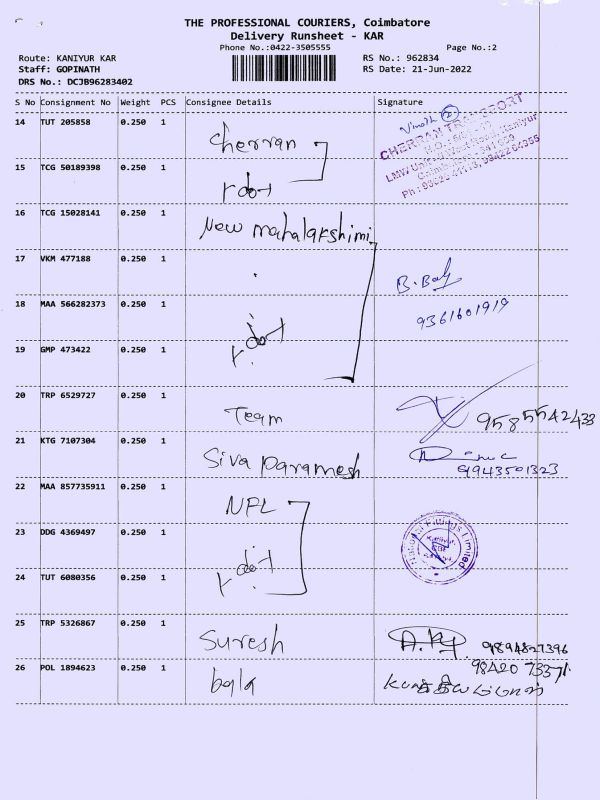 THE PROFESSIONAL COURIERS, Coimbatore
Delivery Runsheet - KAR
Phone No.:0422-3505555 Page No.:2
Route: KANIYUR KAR RS No.: 962834
Staff: GOPINATH RS Date: 21-Jun-2022
DRS No.: DCJB96283402
S No Consignment No Weight PCS Consignee Details Signature
14 TUT 205858 0.250 1 Cherran Vinoth
CHERRAN TRANSPORT
15 TCG 50189398 0.250 1
16 TCG 15028141 0.250 1 New mahalakshimi
17 VKM 477188 0.250 1
18 MAA 566282373 0.250 1 9361601919
19 GMP 473422 0.250 1
20 TRP 6529727 0.250 1 Team 9585542433
21 KTG 7107304 0.250 1 Siva paramesh 9943501323
22 MAA 857735911 0.250 1 NFL
23 DDG 4369497 0.250 1 National Fittings Limited
24 TUT 6080356 0.250 1
25 TRP 5326867 0.250 1 Suresh 9894827396
26 POL 1894623 0.250 1 bala 98420 73371